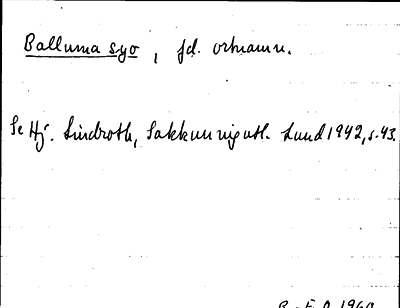 Balluma syo, fd. ortnamn.
Se Hj. Lindroth, Sakkunnigutl. Lund 1942, s. 43.
1960